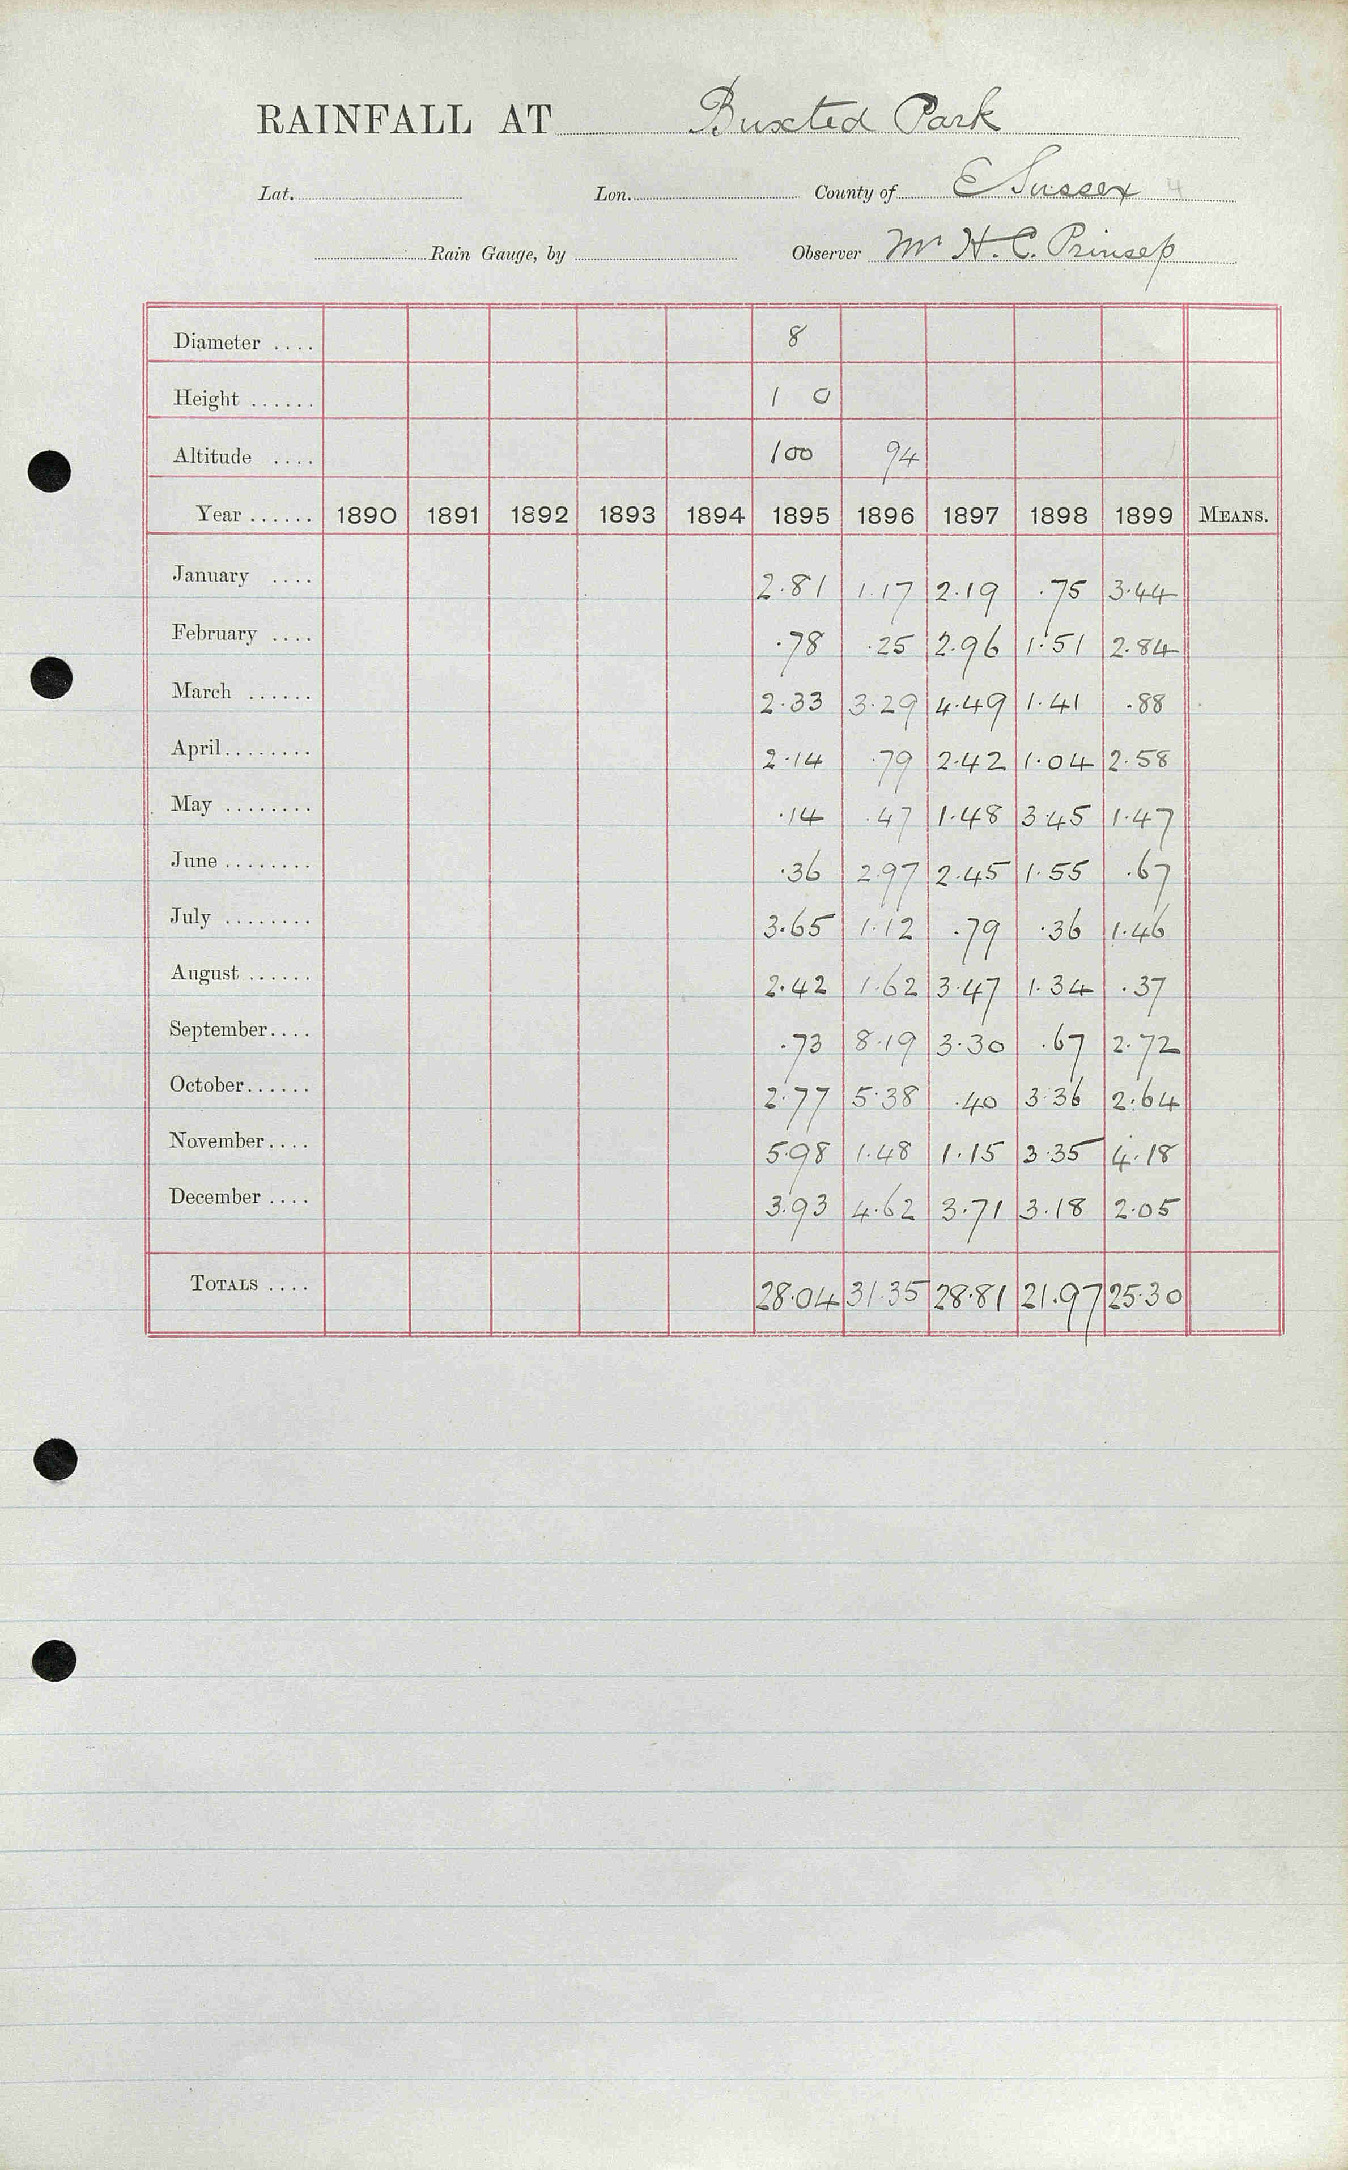 RAINFALL AT Buxted Park
Lat. Lon. County of E Sussex 4
Rain Gauge, by Observer Mr H. C. Prinsep
Diameter .... 8
Height ...... 1 0
Altitude .... 100 94
Year ...... 1890 1891 1892 1893 1894 1895 1896 1897 1898 1899 MEANS.
January .... 2.81 1.17 2.19 .75 3.44
February .... .78 .25 2.96 1.51 2.84
March ...... 2.33 3.29 4.49 1.41 .88
April........ 2.14 .79 2.42 1.04 2.58
May ........ .14 .47 1.48 3.45 1.47
June ........ .36 2.97 2.45 1.55 .67
July ........ 3.65 1.12 .79 .36 1.46
August ...... 2.42 1.62 3.47 1.34 .37
September.... .73 8.19 3.30 .67 2.72
October...... 2.77 5.38 .40 3.36 2.64
November.... 5.98 1.48 1.15 3.35 4.18
December .... 3.93 4.62 3.71 3.18 2.05
TOTALS .... 28.04 31.35 28.81 21.97 25.30